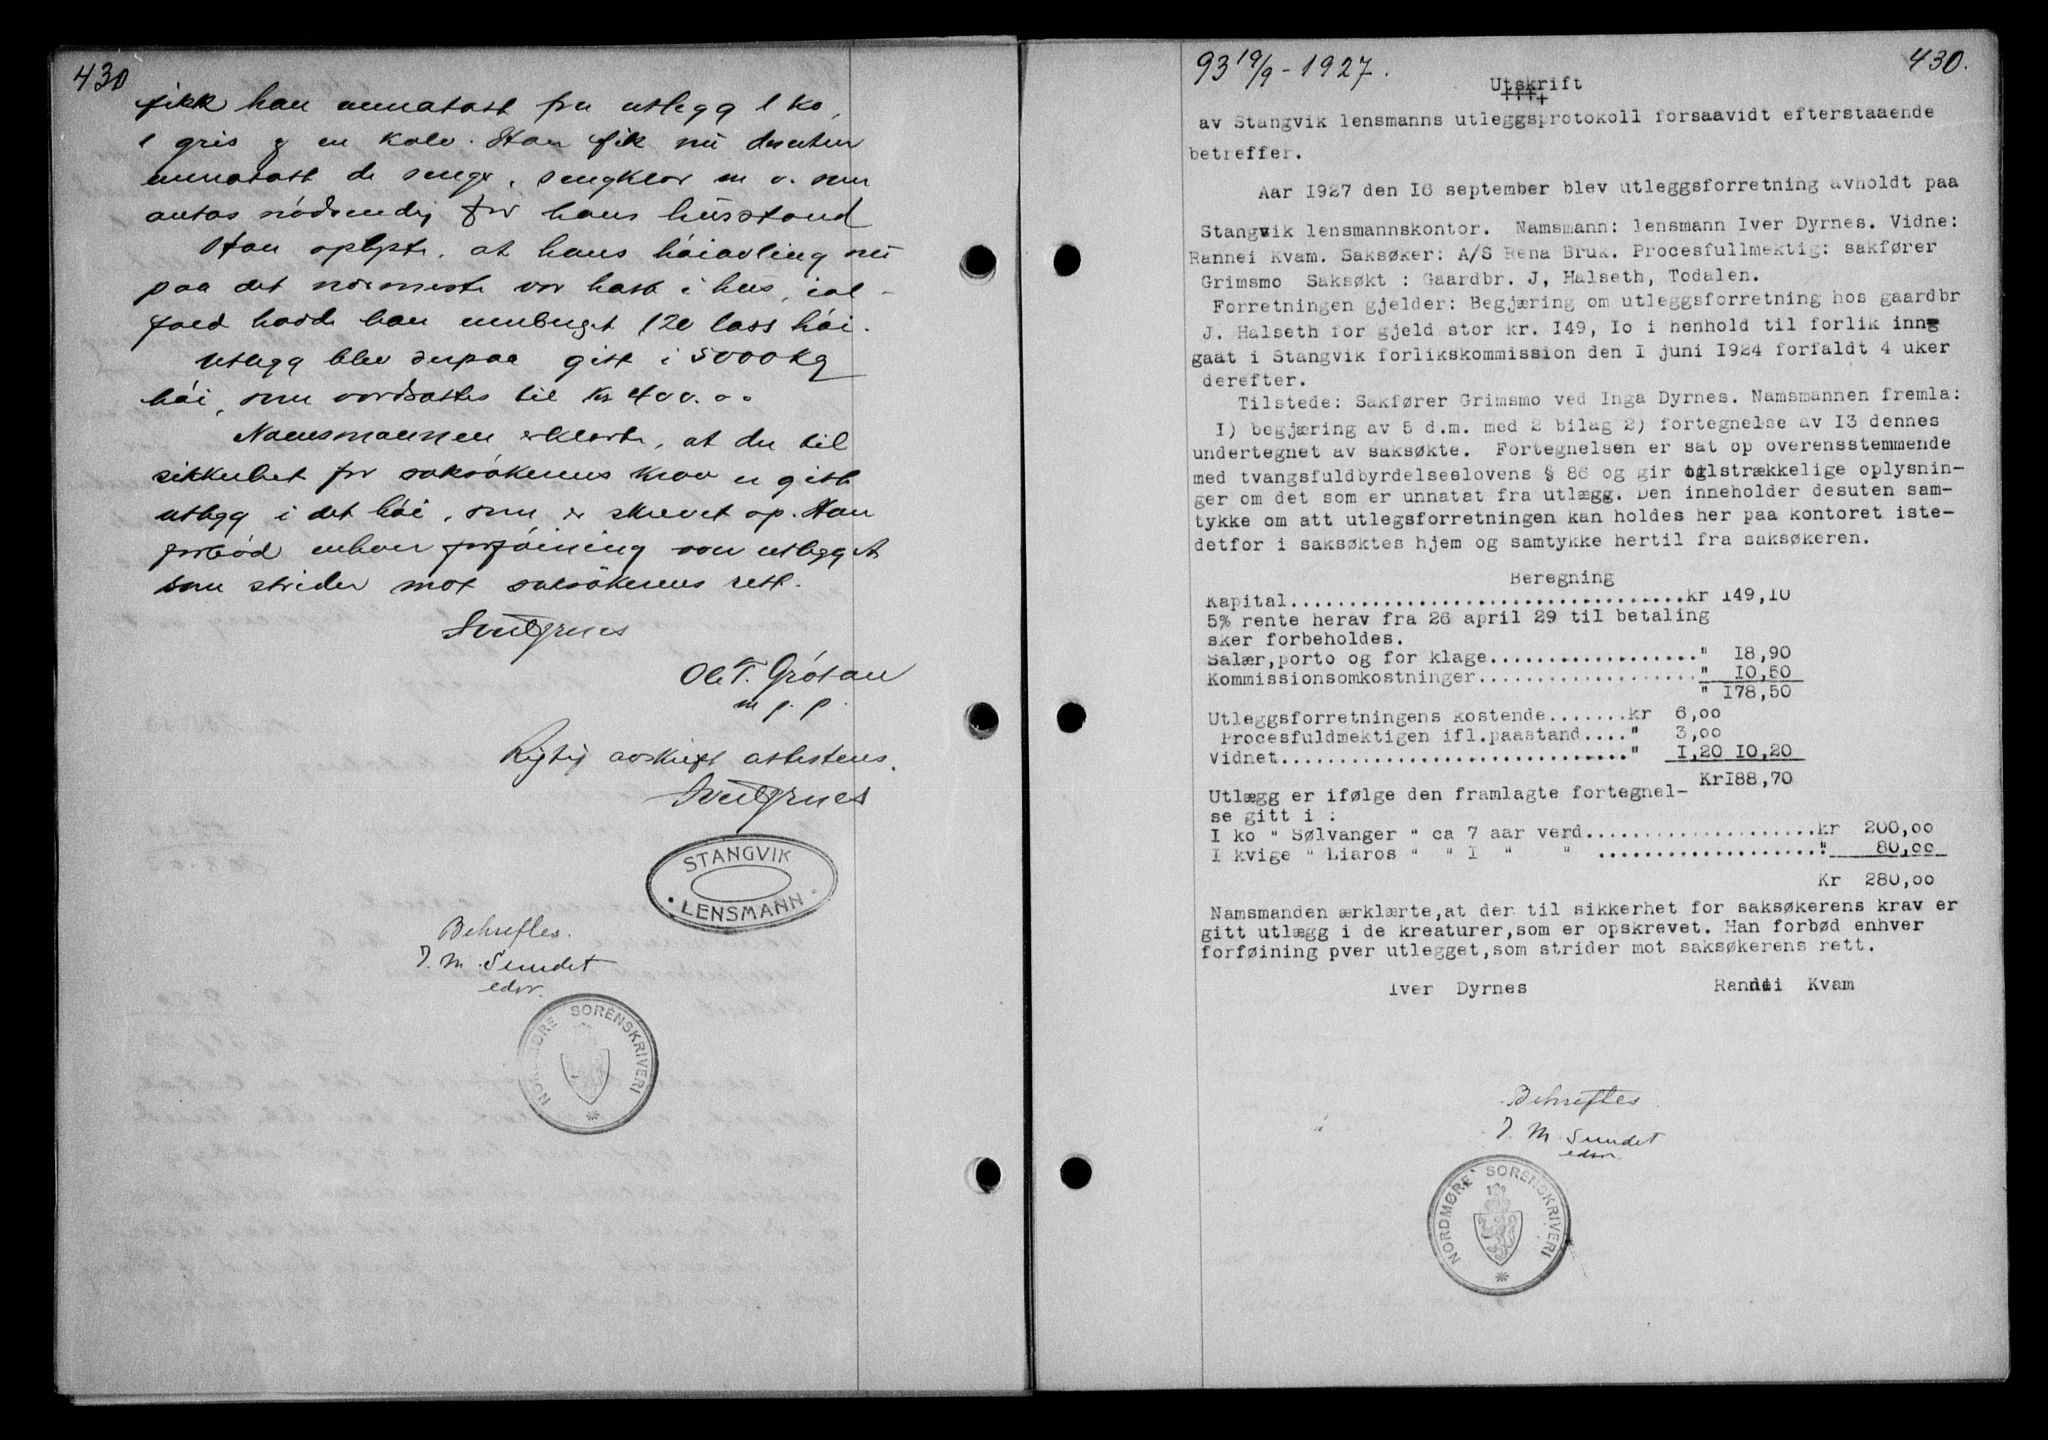 430
fikk han unnatatt fra utlegg 1 ko,
1 gris og en kalv. Han fik nu desuten
unnatatt de senge, sengklær m v. som
antas nødvendig for hans husstand
Han oplyste, at hans høiavling nu
paa det nærmeste var hatt i hus, ial-
fald hadde han innberget 120 lass høi.
Utlegg blev derpaa gitt i 5000 kg
høi, som verdsattes til kr 400.00
Namsmannen erklærte, at der til
sikkerhet for saksøkerens krav er gitt
utlegg i det høi, som er skrevet op. Han
forbød enhver forføining over utlegget
som strider mot saksøkerens rett.
Iver Dyrnes
Ole T. Grótan
m p. p.
Rigtig avskrift attesteres.
Iver Dyrnes
STANGVIK
LENSMANN
Bekreftes.
J. M. Sundet
edsv.
NORDMØRE SORENSKRIVERI
93 19/9-1927.
430.
Utskrift
++++
av Stangvik lensmanns utleggsprotokoll forsaavidt efterstaaende
betreffer.
Aar 1927 den 16 september blev utleggsforretning avholdt paa
Stangvik lensmannskontor. Namsmann: lensmann Iver Dyrnes. Vidne:
Rannei Kvam. Saksøker: A/S Rena Bruk. Procesfullmektig: sakfører
Grimsmo Saksøkt : Gaardbr. J, Halseth, Todalen.
Forretningen gjelder: Begjæring om utleggsforretning hos gaardbr
J. Halseth for gjeld stor kr. 149, 10 i henhold til forlik inng
gaat i Stangvik forlikskommission den I juni 1924 forfaldt 4 uker
derefter.
Tilstede: Sakfører Grimsmo ved Inga Dyrnes. Namsmannen fremla:
I) begjæring av 5 d.m. med 2 bilag 2) fortegnelse av 13 dennes
undertegnet av saksøkte. Fortegnelsen er sat op overensstemmende
med tvangsfuldbyrdelseslovens § 86 og gir tilstrækkelige oplysnin-
ger om det som er unnatat fra utlægg. Den inneholder desuten sam-
tykke om att utlegsforretningen kan holdes her paa kontoret iste-
detfor i saksøktes hjem og samtykke hertil fra saksøkeren.
Beregning
Kapital......................................kr 149,10
5% rente herav fra 26 april 29 til betaling
sker forbeholdes.
Salær,porto og for klage....................." 18,90
Kommissionsomkostninger......................" 10,50
" 178,50
Utleggsforretningens kostende.......kr 6,00
Procesfuldmektigen ifl.paastand...." 3,00
Vidnet.............................." 1,20 10,20
Kr188,70
Utlægg er ifølge den framlagte fortegnel-
se gitt i :
I ko " Sølvanger " ca 7 aar verd.......................kr 200,00
I kvige " Liaros " " I " " ......................" 80,00
Kr 280,00
Namsmanden ærklærte,at der til sikkerhet for saksøkerens krav er
gitt utlægg i de kreaturer,som er opskrevet. Han forbød enhver
forføining pver utlegget,som strider mot saksøkerens rett.
Iver Dyrnes Rannei Kvam
Bekreftes
J. M. Sundet
edsv.
NORDMØRE SORENSKRIVERI